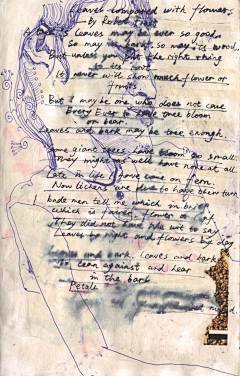 Leaves compared with flowers
- By Robert Frost
A tree's leaves may be ever so good,
So may its bark, so may its wood,
But unless you put the right thing
to its root
It never will show much flower or
fruit.
But I may be one who does not care
Ever to have tree bloom
or bear.
Leaves and bark may be tree enough.
Some giant trees have bloom so small
They might as well have none at all.
Late in life I have come on fern.
Now lichens are due to have their turn
I bade men tell me which in brief
Which is fairer, flower or
They did not have the wit to say
Leaves by night and flowers by day
and bark, leaves and bark
To lean against and hear
in the bark
Petals